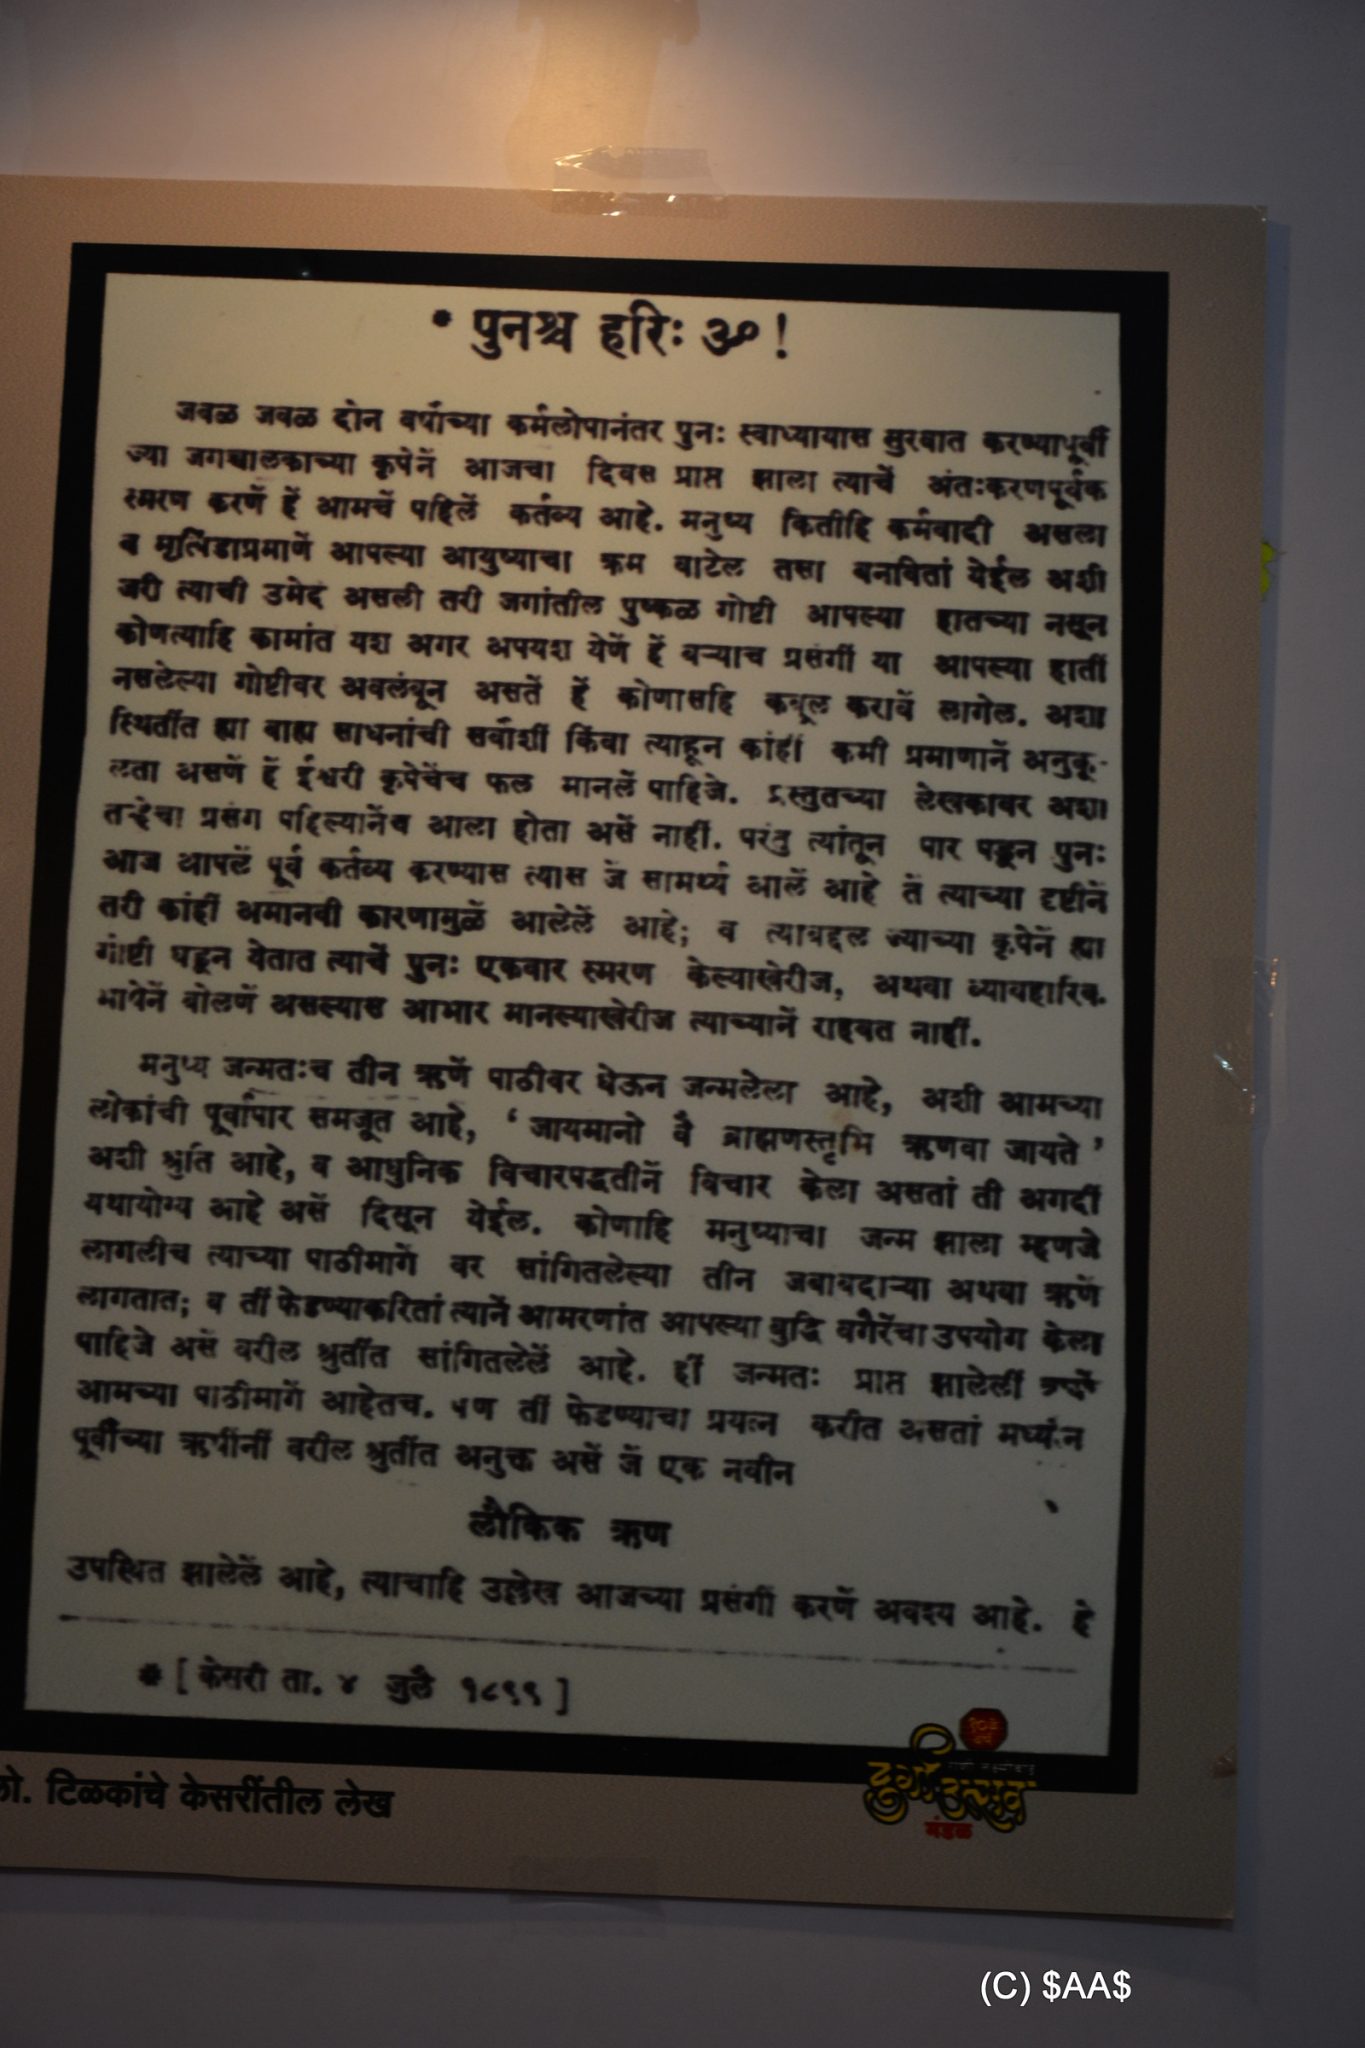 * पुनश्च हरिः ॐ !
जवळ जवळ दोन वर्षांच्या कर्मलोपानंतर पुनः स्वाध्यायास सुरवात करण्यापूर्वी
ज्या जगच्चालकाच्या कृपेनें आजचा दिवस प्राप्त झाला त्याचें अंतःकरणपूर्वक
स्मरण करणें हें आमचें पहिलें कर्तव्य आहे. मनुष्य कितीहि कर्मवादी असला
व मृत्पिंडाप्रमाणें आपल्या आयुष्याचा क्रम वाटेल तसा बनवितां येईल अशी
जरी त्याची उमेद असली तरी जगांतील पुष्कळ गोष्टी आपल्या हातच्या नसून
कोणत्याहि कामांत यश अगर अपयश येणें हें बऱ्याच प्रसंगीं या आपल्या हातीं
नसलेल्या गोष्टींवर अवलंबून असतें हें कोणासहि कबूल करावें लागेल. अशा
स्थितींत ह्या बाह्य साधनांची सर्वांशीं किंवा त्याहून कांहीं कमी प्रमाणानें अनुकू-
लता असणें हें ईश्वरी कृपेचेंच फल मानलें पाहिजे. प्रस्तुतच्या लेखकावर अशा
तऱ्हेचा प्रसंग पहिल्यानेंच आला होता असें नाहीं. परंतु त्यांतून पार पडून पुनः
आज आपलें पूर्व कर्तव्य करण्यास त्यास जें सामर्थ्य आलें आहे तें त्याच्या दृष्टीनें
तरी कांहीं अमानवी कारणामुळें आलेलें आहे; व त्याबद्दल ज्याच्या कृपेनें ह्या
गोष्टी घडून येतात त्याचें पुनः एकवार स्मरण केल्याखेरीज, अथवा व्यावहारिक
भाषेनें बोलणें असल्यास आभार मानल्याखेरीज त्याच्यानें राहवत नाहीं.
मनुष्य जन्मतःच तीन ऋणें पाठीवर घेऊन जन्मलेला आहे, अशी आमच्या
लोकांची पूर्वापार समजूत आहे, ‘ जायमानो वै ब्राह्मणस्तृभि ऋणवा जायते ’
अशी श्रुति आहे, व आधुनिक विचारपद्धतीनें विचार केला असतां ती अगदीं
यथायोग्य आहे असें दिसून येईल. कोणाहि मनुष्याचा जन्म झाला म्हणजे
लागलीच त्याच्या पाठीमागें वर सांगितलेल्या तीन जबाबदाऱ्या अथवा ऋणें
लागतात; व तीं फेडण्याकरितां त्यानें आमरणांत आपल्या बुद्धि वगैरेंचा उपयोग केला
पाहिजे असें वरील श्रुतींत सांगितलेलें आहे. हीं जन्मतः प्राप्त झालेलीं ऋणें
आमच्या पाठीमागें आहेतच. पण तीं फेडण्याचा प्रयत्न करीत असतां मध्यंतरीं
पूर्वीच्या ऋषींनीं वरील श्रुतींत अनुक्त असें जें एक नवीन
लौकिक ऋण
उपस्थित झालेलें आहे, त्याचाहि उल्लेख आजच्या प्रसंगीं करणें अवश्य आहे. हे
* [ केसरी ता. ४ जुलै १८९९ ]
लो. टिळकांचे केसरींतील लेख
दुर्गा उत्सव
मंडळ
(C) $AA$